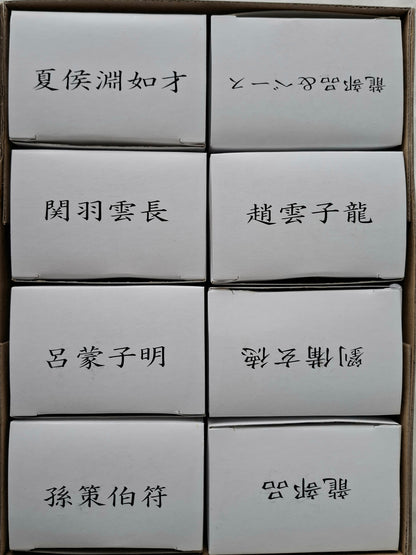 夏侯淵如才
龍部品&ベース
関羽雲長
趙雲子龍
呂蒙子明
劉備玄徳
孫策伯符
龍部品